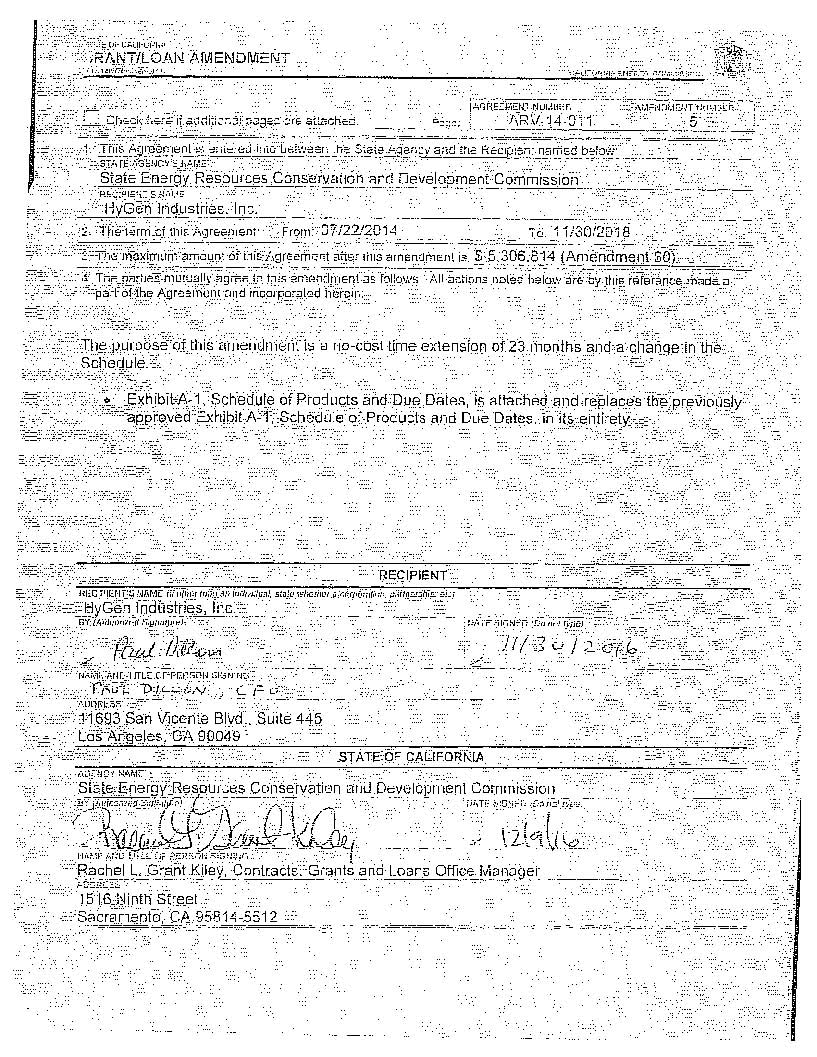 RANT/LOAN AMENDMENT
Check here if additional pages are attached.
AGREEMENT NUMBER
ARV-14-011
AMENDMENT NUMBER
5
1. This Agreement is entered into between the State Agency and the Recipient named below
STATE AGENCY'S NAME
State Energy Resources Conservation and Development Commission
RECIPIENT'S NAME
HyGen Industries, Inc.
2. The term of this Agreement From: 07/22/2014 To 11/30/2018
3. The maximum amount of this Agreement after this amendment is $ 5,306,814 (Amendment $0)
4. The parties mutually agree to this amendment as follows. All actions notes below are by this reference made a
part of the Agreement and incorporated herein.
The purpose of this amendment is a no-cost time extension of 23 months and a change in the
Schedule.
• Exhibit A-1, Schedule of Products and Due Dates, is attached and replaces the previously
approved Exhibit A-1, Schedule of Products and Due Dates, in its entirety.
RECIPIENT
RECIPIENT'S NAME (If other than an individual, state whether a corporation, partnership, etc)
HyGen Industries, Inc.
BY (Authorized Signature)
DATE SIGNED (Do not type)
Paul Dillon
11/30/2016
NAME AND TITLE OF PERSON SIGNING
PAUL DILLON, CFO
ADDRESS
11693 San Vicente Blvd., Suite 445
Los Angeles, CA 90049
STATE OF CALIFORNIA
AGENCY NAME
State Energy Resources Conservation and Development Commission
BY (Authorized Signature)
DATE SIGNED (Do not type)
12/9/16
NAME AND TITLE OF PERSON SIGNING
Rachel L. Grant Kiley, Contracts, Grants and Loans Office Manager
ADDRESS
1516 Ninth Street
Sacramento, CA 95814-5512